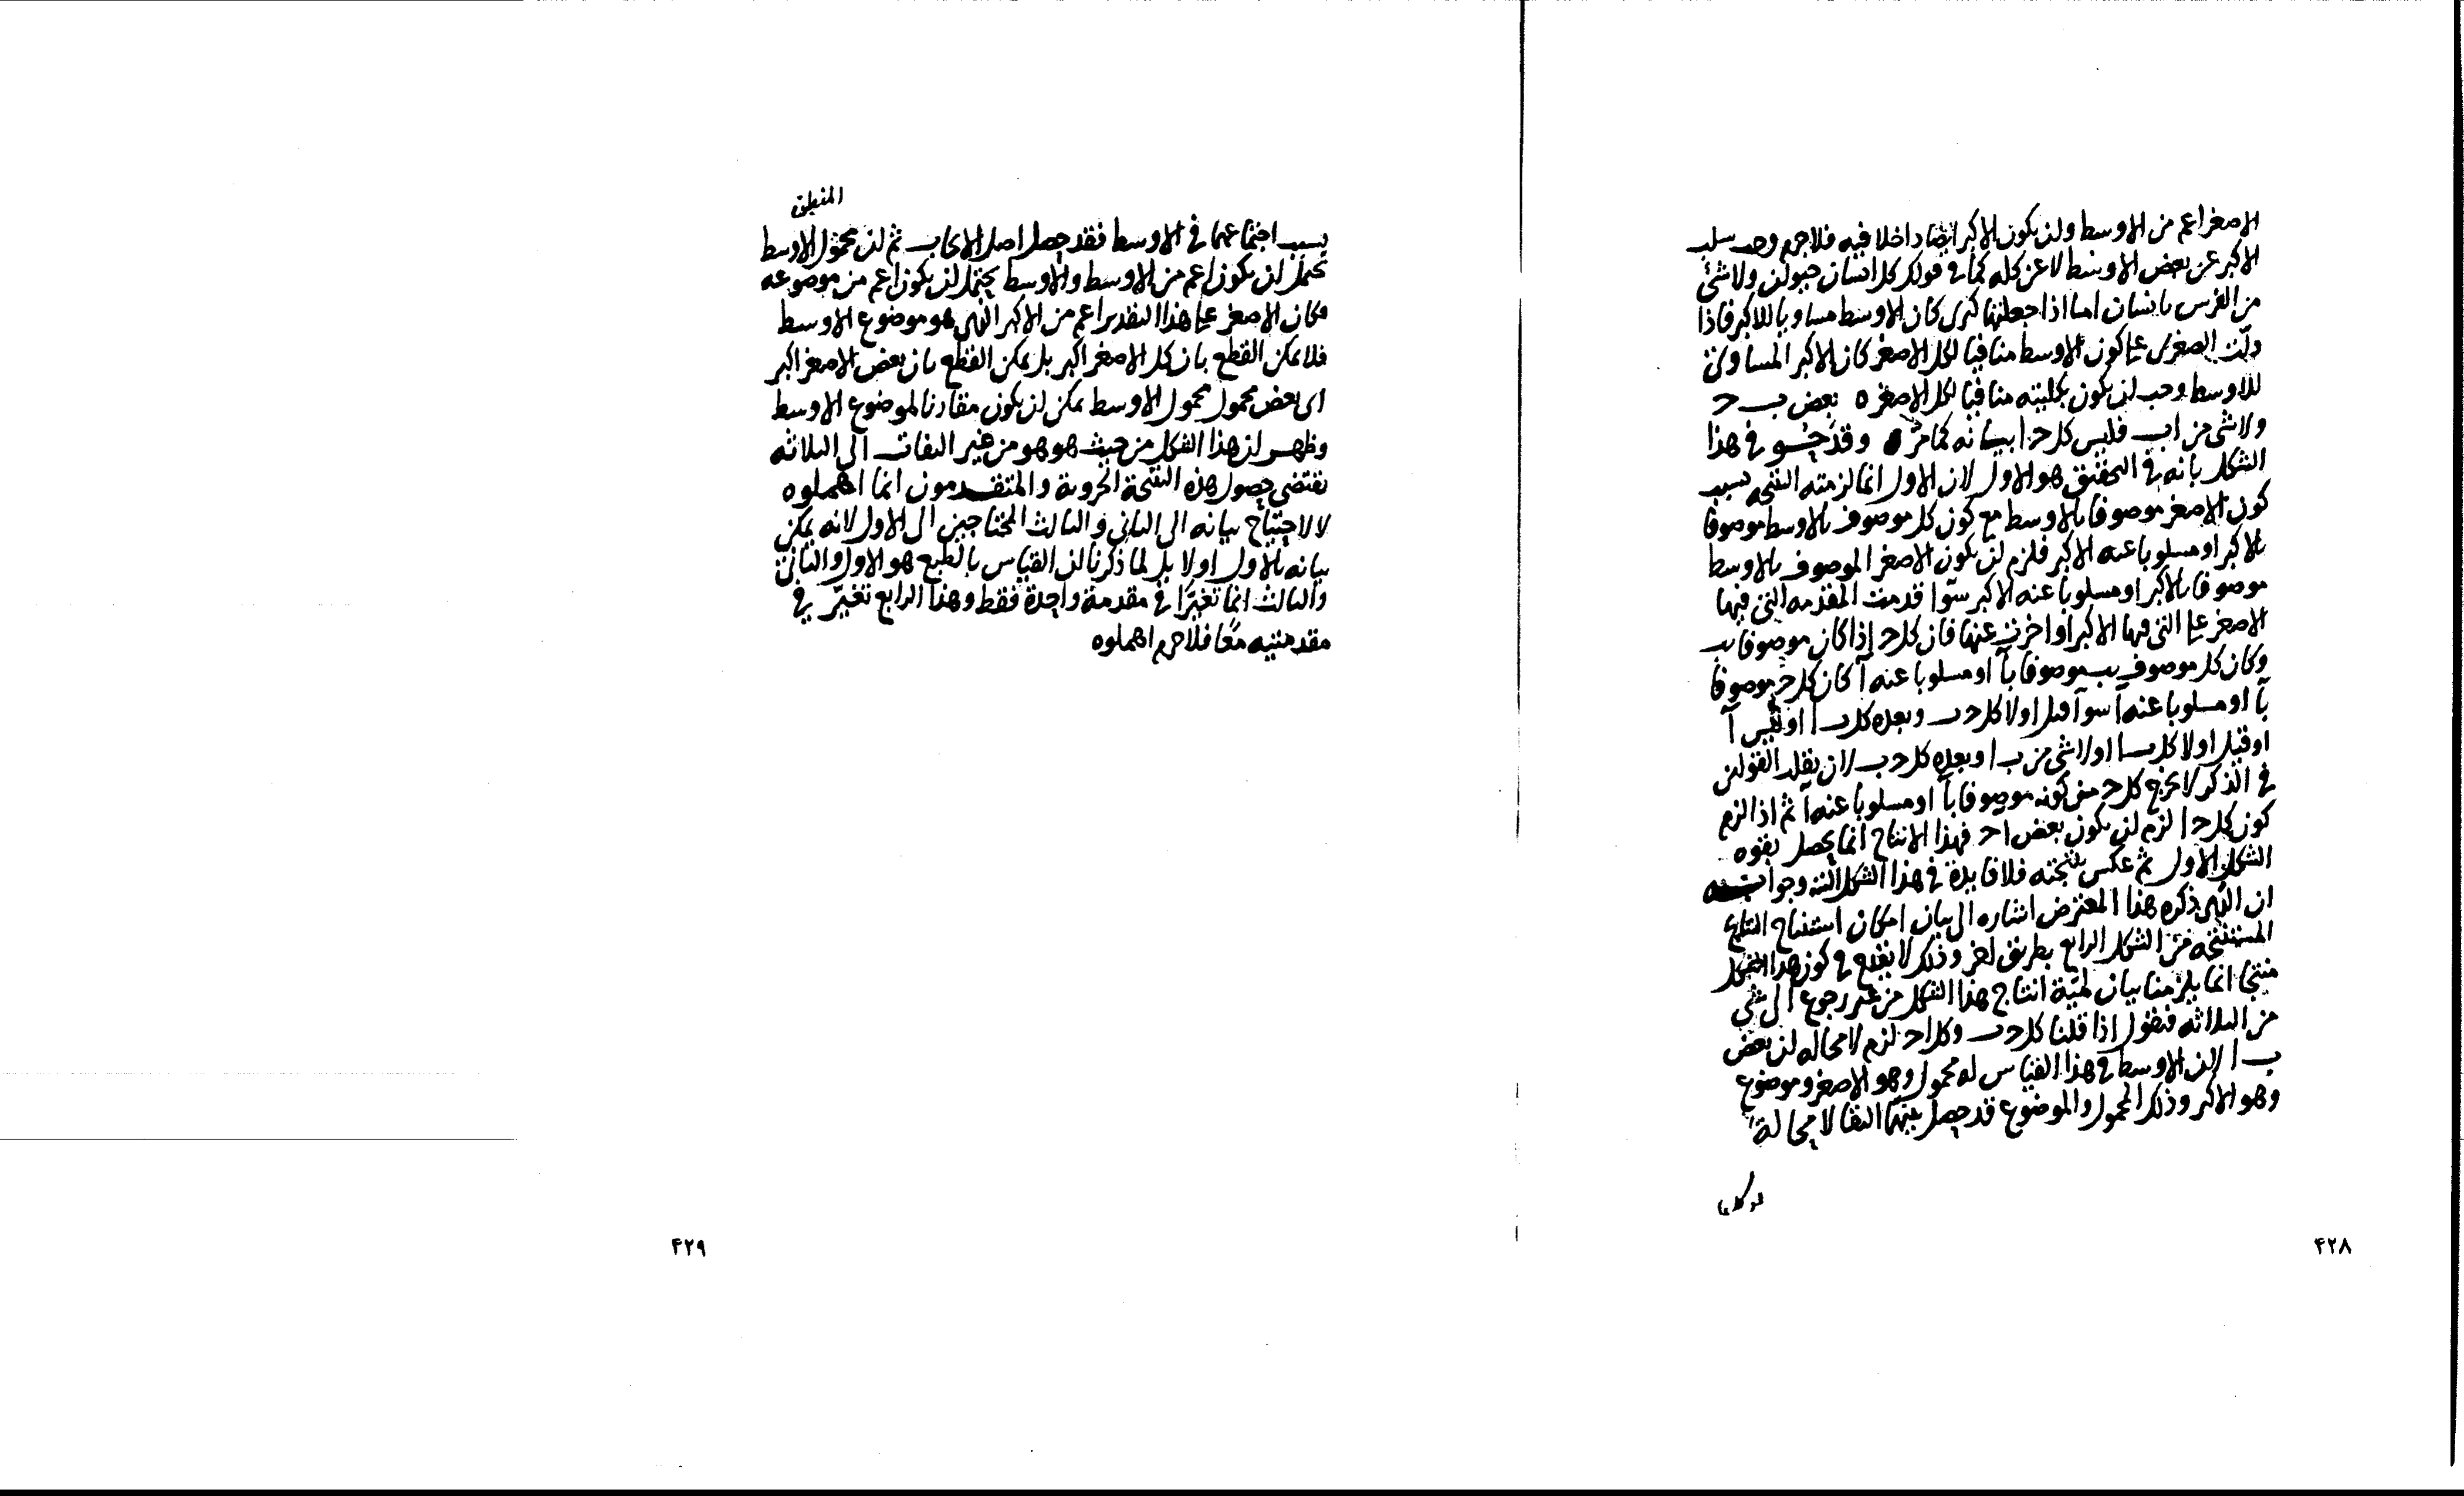 الاصغر اعم من الاوسط ولن يكون الاكبر ايضا داخلا فيه فلاجرم وجب سلب
الاكبر عن بعض الاوسط لا عن كله كما في قولك كل انسان حيوان ولا شئ
من الفرس بانسان اما اذا جعلتها كبرى كان الاوسط مساويا للاكبر فاذا
دلت الصغرى على كون الاوسط منافيا لكل الاصغر كان الاكبر المساوي
للاوسط وجب لن يكون بكليته منافيا لكل الاصغر ه بعض ب ح
ولا شى من ا ب فليس كل ح ا بيانه كما مر ه وقد في هذا
الشكل بانه في التحقيق هو الاول لان الاول انما لزمته النتيجه بسبب
كون الاصغر موصوفا بالاوسط مع كون كل موصوف بالاوسط موصوفا
بالاكبر او مسلوبا عنه الاكبر فلزم لن يكون الاصغر الموصوف بالاوسط
موصوفا بالاكبر او مسلوبا عنه الاكبر سوا قدمت المقدمه التى فيها
الاصغر على التى فيها الاكبر او اخرت عنها فان كل ح اذا كان موصوفا بب
وكان كل موصوف بب موصوفا بآ او مسلوبا عنه آ كان كل ح موصوفا
بآ او مسلوبا عنه آ سوآ قيل اولا كل ح ب وبعده كل ب ا او ليس آ
او قيل اولا كل ب ا او لا شى من ب ا وبعده كل ح ب لان القولين
في الذكر لا يخرج كل ح من كونه موصوفا بآ او مسلوبا عنه آ ثم اذا لزم
كون كل ح ا لزم لن يكون بعض ا ح فهذا الانتاج انما يحصل بقوه
الشكل الاول ثم عكس نتيجته فلا فايدة في هذا الشكل وجوابه
ان الذى ذكره هذا المعترض اشاره الى بيان امكان استنتاج النتايج
المستنتجه من الشكل الرابع بطريق اخر وذلك لا يقدح في كون هذا الشكل
منتجا انما يلزمنا بيان لمية انتاج هذا الشكل من غير رجوع الى شى
من الثلاثه فنقول اذا قلنا كل ح ب وكل ا ح لزم لا محاله لن بعض
ب ا لان الاوسط في هذا القياس له محمول وهو الاصغر وموضوع
وهو الاكبر وذلك المحمول والموضوع قد حصل بينهما التقا لا محالة
۴۲۸
المنطق
بسبب اجتماعهما في الاوسط فقد حصل اصل الايجاب ثم لن محمول الاوسط
يحتمل لن يكون اعم من الاوسط والاوسط يحتمل لن يكون اعم من موضوعه
فكان الاصغر على هذا التقدير اعم من الاكبر الذى هو موضوع الاوسط
فلا يمكن القطع بان كل الاصغر اكبر بل يمكن القطع بان بعض الاصغر اكبر
اى بعض محمول محمول الاوسط يمكن لن يكون مقارنا لموضوع الاوسط
وظهر لن هذا الشكل من حيث هو هو من غير التفات الى الثلاثه
يقتضى حصول هذه النتيجة الجزوية والمتقدمون انما اهملوه
لا لاحتياج بيانه الى الثانى والثالث المحتاجين الى الاول لانه يمكن
بيانه بالاول اولا بل لما ذكرنا لن القياس بالطبع هو الاول والثانى
والثالث انما تغيرا في مقدمة واحدة فقط وهذا الرابع تغير في
مقدمتيه معا فلاجرم اهملوه
۴۲۹